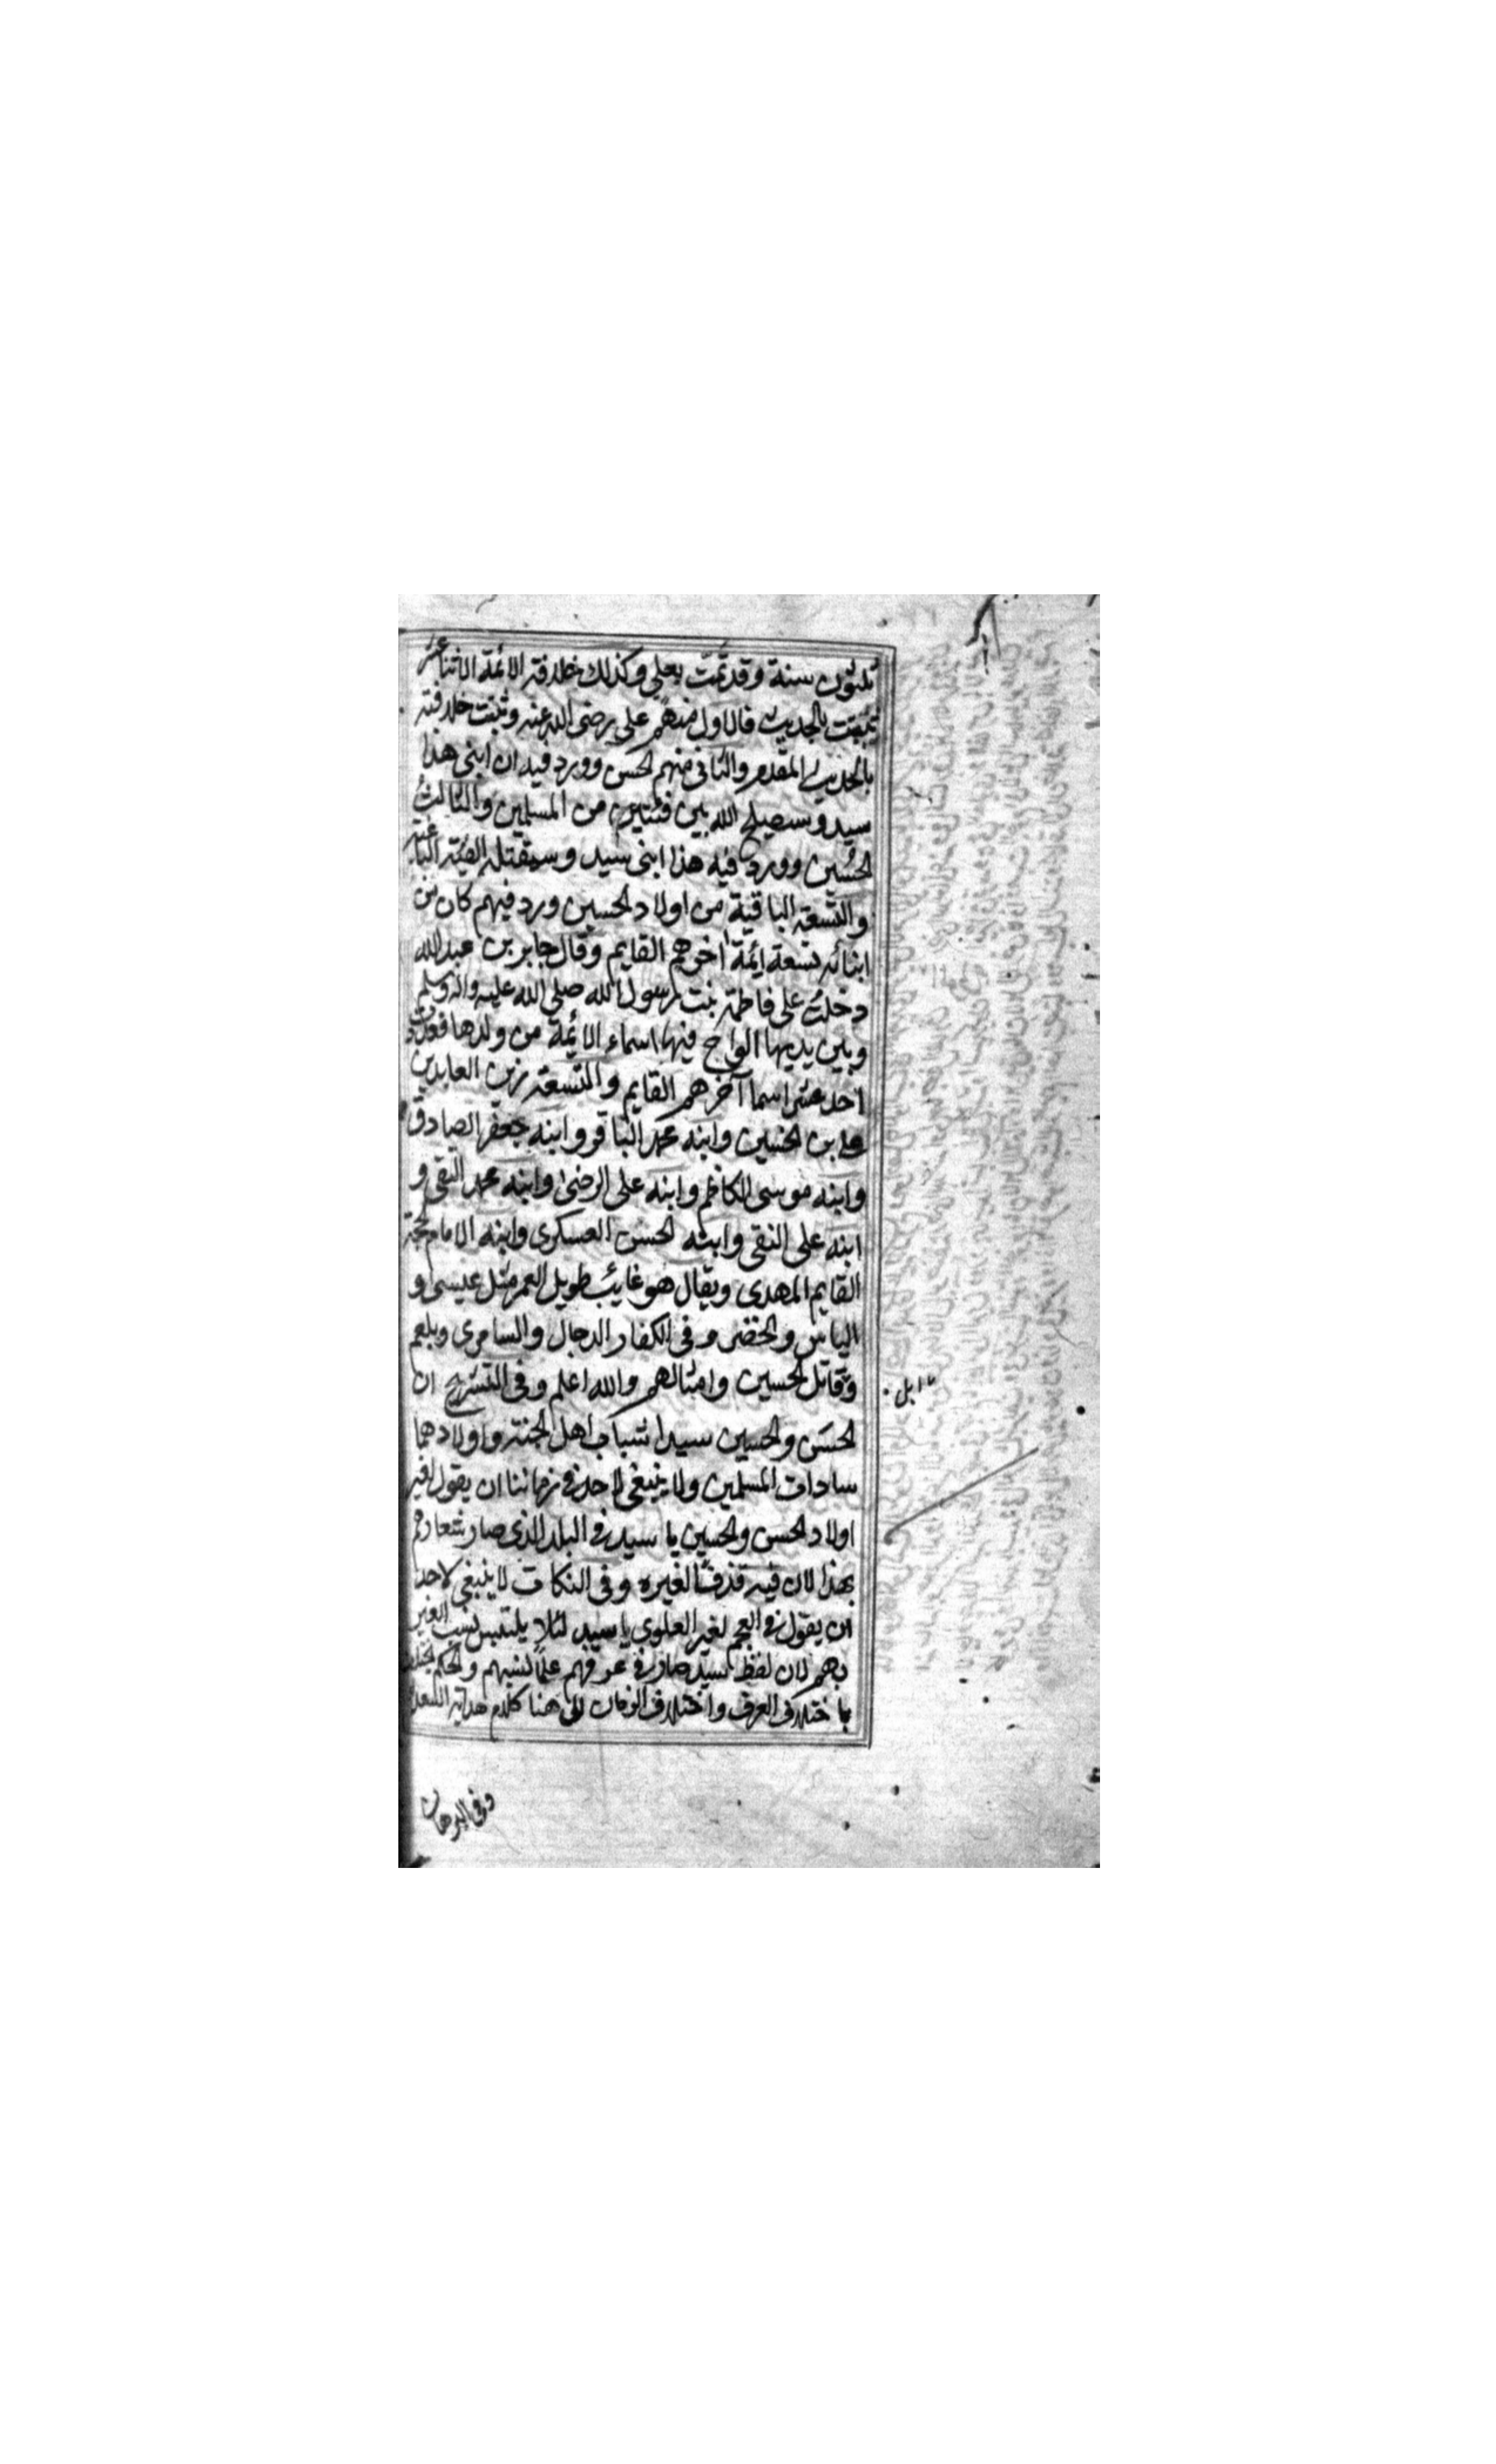 ثلثون سنة وقد تمّت بعلي وكذلك خلافة الائمة الاثنا عشر
ثبتت بالحديث فالاول منهم علي رضى الله عنه وثبتت خلافته
بالحديث المقدم والثانى منهم الحسن وورد فيه ان ابنى هذا
سيد وسيصلح الله بين فئتين من المسلمين والثالث
الحسين وورد فيه هذا ابنى سيد وستقتله الفئة الباغية
والتسعة الباقية من اولاد الحسين ورد فيهم كان من
ابنائه تسعة ائمة اخرهم القايم وقال جابر بن عبد الله
دخلت على فاطمة بنت رسول الله صلى الله عليه واله وسلم
وبين يديها الواح فيها اسماء الائمة من ولدها فعددت
احد عشر اسما آخرهم القايم والتسعة زين العابدين
على بن الحسين وابنه محمد الباقر وابنه جعفر الصادق
وابنه موسى الكاظم وابنه على الرضى وابنه محمد التقى و
ابنه على النقى وابنه الحسن العسكرى وابنه الامام الحجة
القايم المهدى ويقال هو غايب طويل العمر مثل عيسى و
الياس والخضر وفى الكفار الدجال والسامرى وبلعم
وقاتل الحسين وامثالهم والله اعلم وفى التشريح ان
الحسن والحسين سيدا شباب اهل الجنة واولادهما
سادات المسلمين ولا ينبغى لاحد فى زماننا ان يقول لغير
اولاد الحسن والحسين يا سيد فى البلد الذى صار شعارهم
بهذا لان فيه قذفا لغيره وفى النكات لا ينبغى لاحد
ان يقول فى العجم لغير العلوى يا سيد لئلا يلتبس نسب الغير
بهم لان لفظ سيد صار فى عرفهم علما لنسبهم والحكم يختلف
باختلاف العرف واختلاف الزمان الى هنا كلام هداية السعداء
وفى البرهان